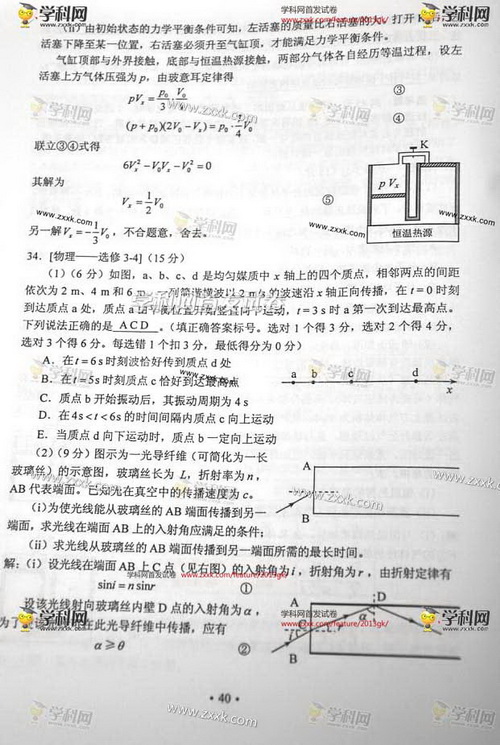 (ii)由初始状态的力学平衡条件可知，左活塞的质量比右活塞的大。打开K
活塞下降至某一位置，右活塞必须升至气缸顶，才能满足力学平衡条件。
气缸顶部与外界接触，底部与恒温热源接触，两部分气体各自经历等温过程，设左
活塞上方气体压强为 p，由玻意耳定律得
pVx = p0/3 · V0/4 ③
(p + p0)(2V0 − Vx) = p0 · 7/4 V0 ④
联立③④式得
6Vx² − V0Vx − V0² = 0
其解为
Vx = 1/2 V0 ⑤
另一解 Vx = −1/3 V0，不合题意，舍去。
K
p Vx
恒温热源
34. [物理——选修 3-4]（15 分）
（1）（6 分）如图，a、b、c、d 是均匀媒质中 x 轴上的四个质点，相邻两点间的间距
依次为 2 m、4 m 和 6 m。一列简谐横波以 2 m/s 的波速沿 x 轴正向传播，在 t = 0 时刻
到达质点 a 处，质点 a 由平衡位置开始竖直向下运动，t = 3 s 时 a 第一次到达最高点。
下列说法正确的是 ACD 。（填正确答案标号。选对 1 个得 3 分，选对 2 个得 4 分，
选对 3 个得 6 分。每选错 1 个扣 3 分，最低得分为 0 分）
A．在 t = 6 s 时刻波恰好传到质点 d 处
B．在 t = 5 s 时刻质点 c 恰好到达最高点
C．质点 b 开始振动后，其振动周期为 4 s
D．在 4 s < t < 6 s 的时间间隔内质点 c 向上运动
E．当质点 d 向下运动时，质点 b 一定向上运动
a b c d
x
（2）（9 分）图示为一光导纤维（可简化为一长
玻璃丝）的示意图，玻璃丝长为 L，折射率为 n，
AB 代表端面。已知光在真空中的传播速度为 c。
(i)为使光线能从玻璃丝的 AB 端面传播到另一
端面，求光线在端面 AB 上的入射角应满足的条件；
(ii) 求光线从玻璃丝的 AB 端面传播到另一端面所需的最长时间。
A
B
解：(i) 设光线在端面 AB 上 C 点（见右图）的入射角为 i，折射角为 r，由折射定律有
sin i = n sin r ①
设该光线射向玻璃丝内壁 D 点的入射角为 α，
在此光导纤维中传播，应有
α ≥ θ ②
A
B
C
D
α
• 40 •
学科网
www.zxxk.com
学科网首发试卷
www.zxxk.com/feature/2013gk/